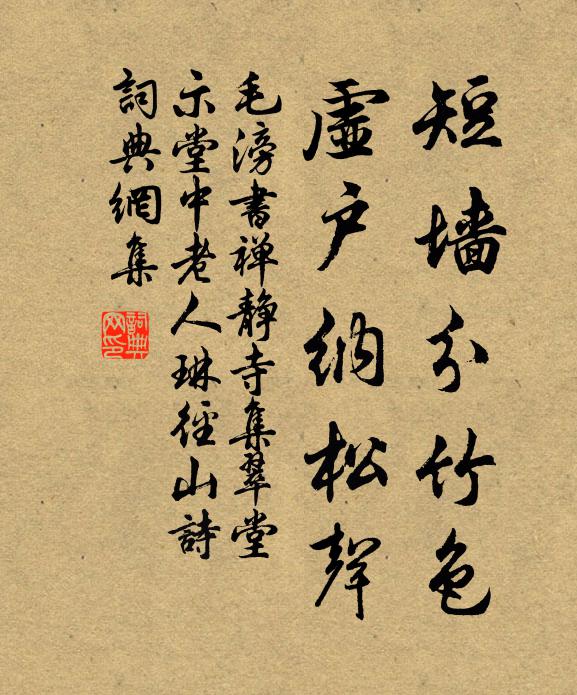 短墙分竹色
虚户纳松聲
毛滂書禅静寺集翠堂
示堂中老人琳徑山詩
詞典網集
詞典網印